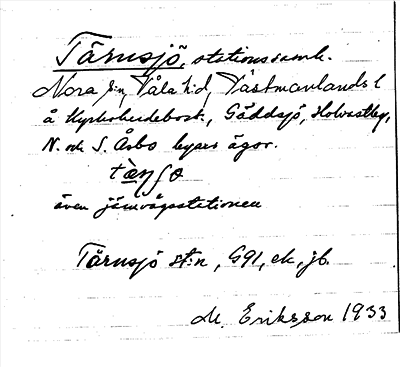 Tärnsjö, stationssamh.
Nora sn, Våla hd, Västmanlands l
å Kyrkoherdebost., Gäddsjö, Holvastby,
N. och S. Åsbo byars ägor.
även järnvägsstationen
Tärnsjö st:n, G91, ek, jb.
M. Eriksson 1933